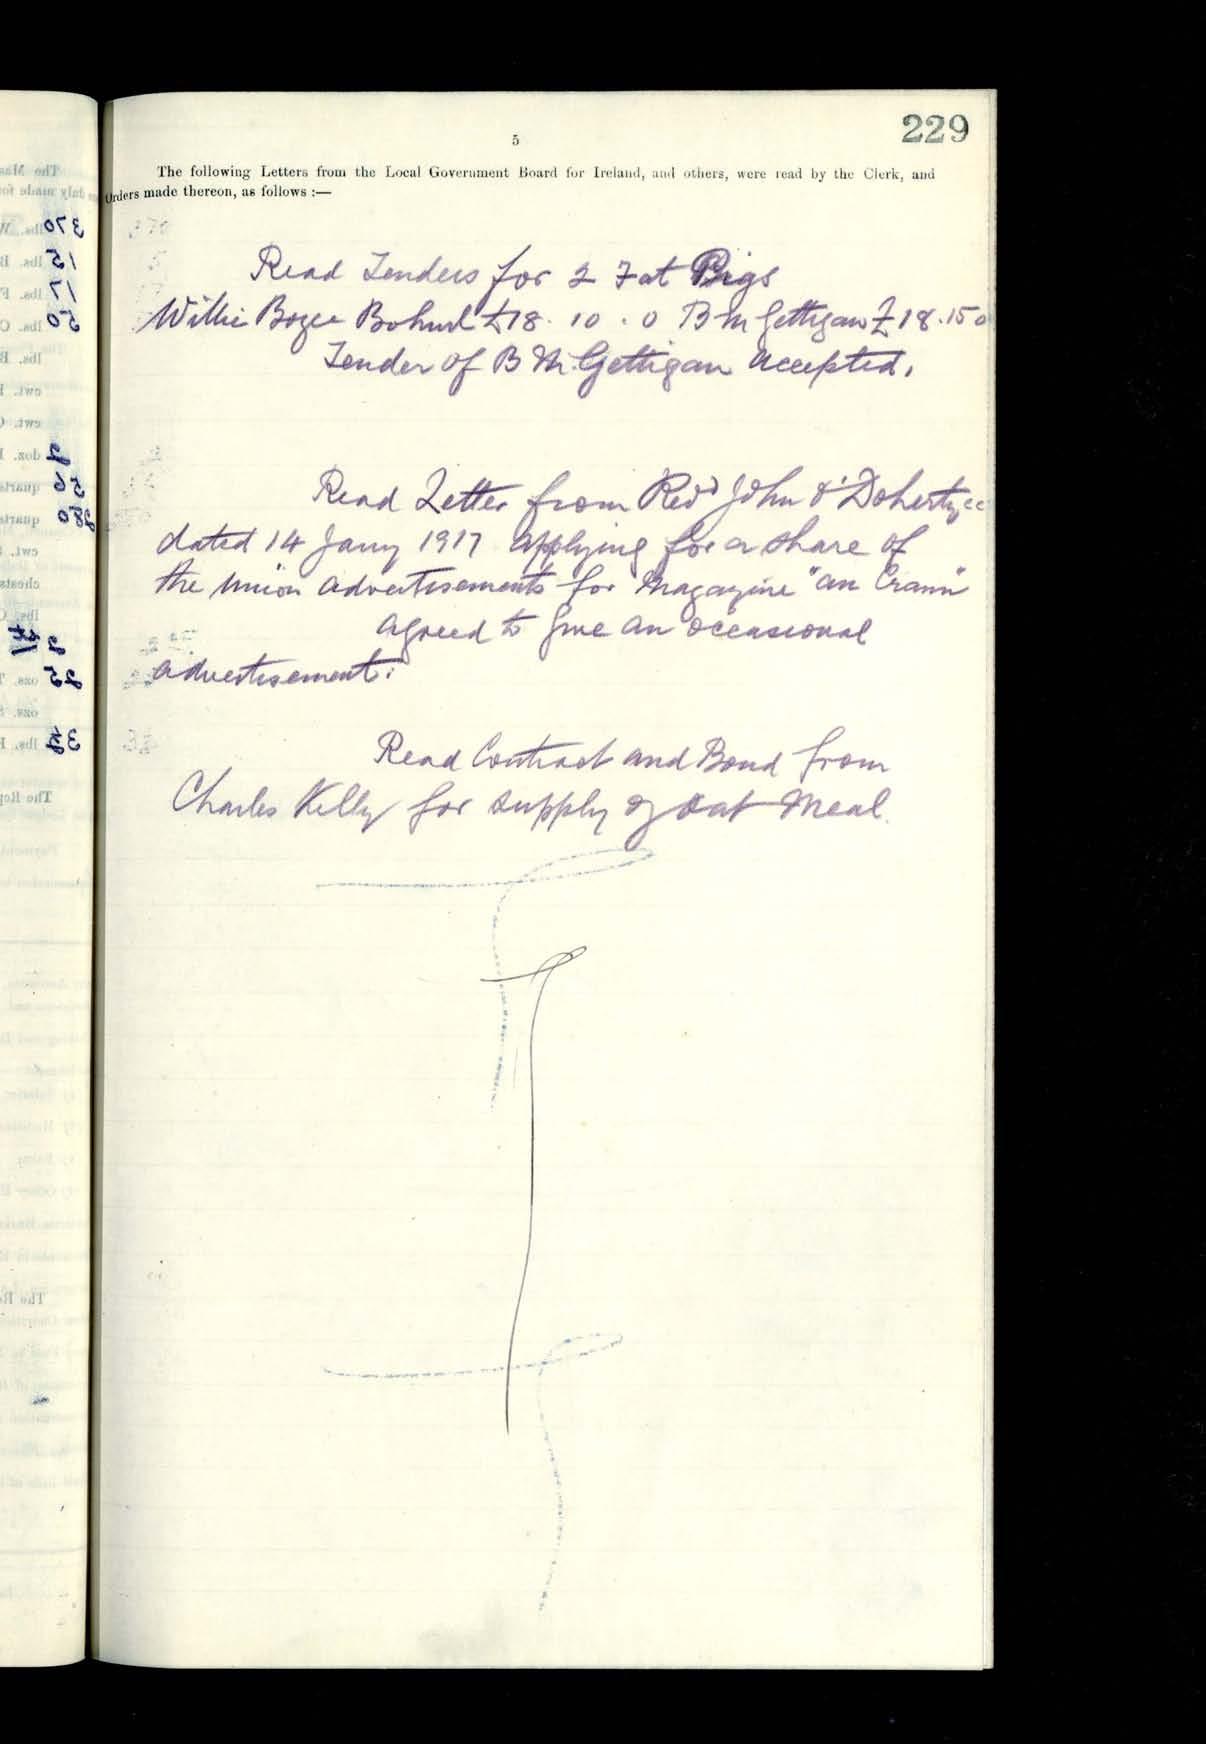 229
5
The following Letters from the Local Government Board for Ireland, and others, were read by the Clerk, and
Orders made thereon, as follows :—
Read Tenders for 2 Fat Pigs
Willie £18. 10. 0 B McGettigan £18.15 0
Tender of B McGettigan Accepted.
Read Letter from Revd John O'Doherty cc
dated 14 Jany 1917 applying for a share of
the Union advertisements for Magazine "an Crann"
agreed to give an occasional
advertisement.
Read Contract and Bond from
Charles Kelly for supply of Oat Meal.